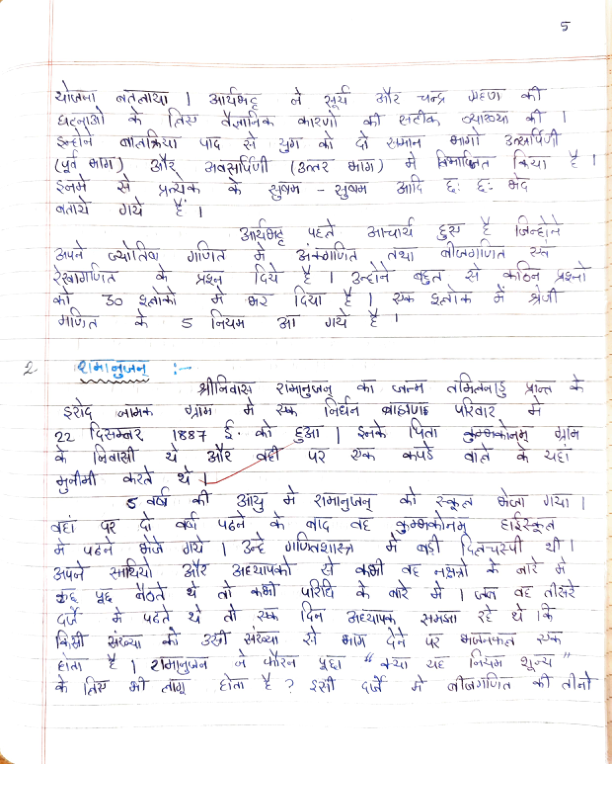 5
योजना बतलाया । आर्यभट्ट ने सूर्य और चन्द्र ग्रहण की
घटनाओ के लिए वैज्ञानिक कारणों की सटीक व्याख्या की ।
इन्होने बालक्रिया पाद से युग को दो समान भागो उत्सर्पिणी
(पूर्व भाग) और अवसर्पिणी (उत्तर भाग) में विभाजित किया है ।
इनमे से प्रत्येक के सुषम - सुषम आदि छः छः भेद
बताये गये हैं ।
आर्यभट्ट पहले आचार्य हुए है जिन्होने
अपने ज्योतिष गणित मे अंकगणित तथा बीजगणित एवं
रेखागणित के प्रश्न दिये है । उन्होने बहुत से कठिन प्रश्नो
को 30 श्लोको में भर दिया है । एक श्लोक में श्रेणी
गणित के 5 नियम आ गये है ।
2. रामानुजन् :-
श्रीनिवास रामानुजन् का जन्म तमिलनाडु प्रान्त के
इरोद नामक ग्राम मे एक निर्धन ब्राह्मण परिवार में
22 दिसम्बर 1887 ई. को हुआ । इनके पिता कुम्भकोनम् ग्राम
के निवासी थे और वही पर एक कपडे वाले के यहां
मुनीमी करते थे ।
5 वर्ष की आयु मे रामानुजन् को स्कूल भेजा गया ।
वहां पर दो वर्ष पढने के बाद वह कुम्भकोनम् हाईस्कूल
मे पढने भेजे गये । उन्हे गणितशास्त्र में बडी दिलचस्पी थी ।
अपने साथियो और अध्यापको से कभी वह नक्षत्रो के बारे में
कुछ पूछ बैठते थे तो कभी परिधि के बारे में । जब वह तीसरे
दर्जे मे पढते थे तो एक दिन अध्यापक समझा रहे थे कि
किसी संख्या को उसी संख्या से भाग देने पर भागफल एक
होता है । रामानुजन ने फौरन पूछा " क्या यह नियम शून्य "
के लिए भी लागू होता है ? इसी दर्जे मे बीजगणित की तीनो